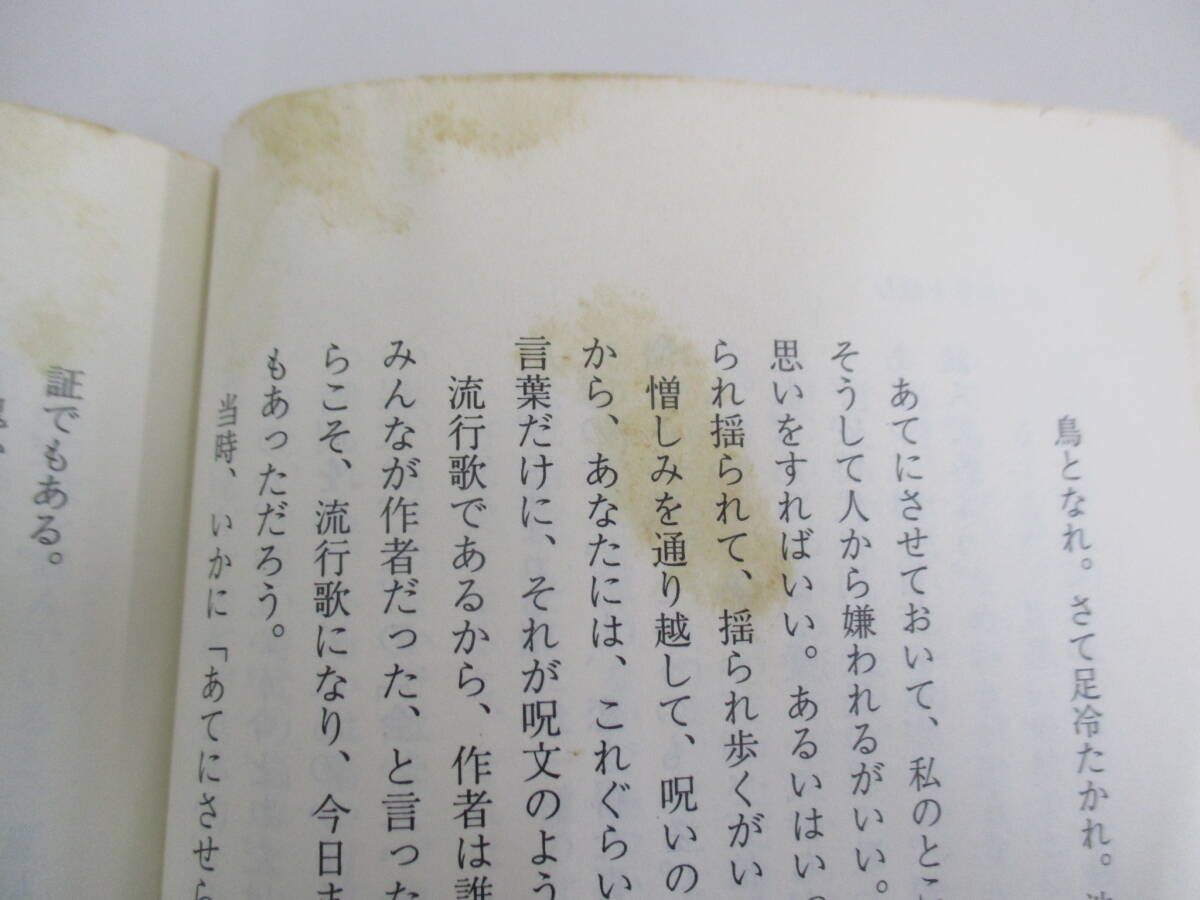 鳥となれ。さて足冷たかれ。池
あてにさせておいて、私のとこ
そうして人から嫌われるがいい。
思いをすればいい。あるいはいっ
られ揺られて、揺られ歩くがい
憎しみを通り越して、呪いの
から、あなたには、これぐらい
言葉だけに、それが呪文のよう
流行歌であるから、作者は誰
みんなが作者だった、と言った
らこそ、流行歌になり、今日ま
もあっただろう。
当時、いかに「あてにさせら
証でもある。